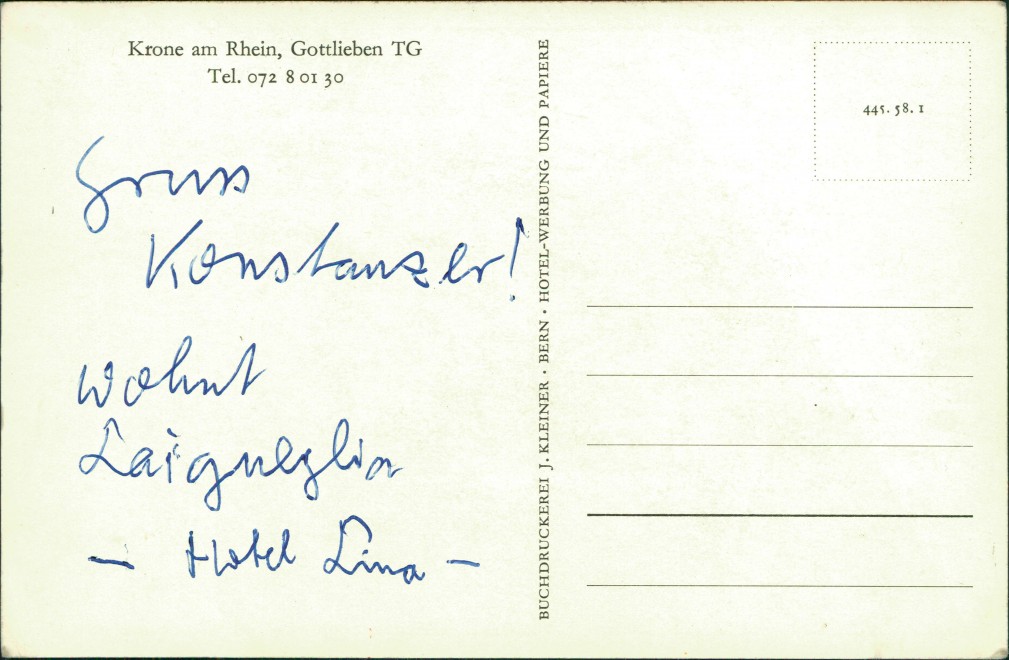 Krone am Rhein, Gottlieben TG
Tel. 072 8 01 30
Gruss
Konstanzer!
wohnt
Laigueglia
– Hotel Lina –
BUCHDRUCKEREI J. KLEINER · BERN · HOTEL-WERBUNG UND PAPIERE
445. 58. 1